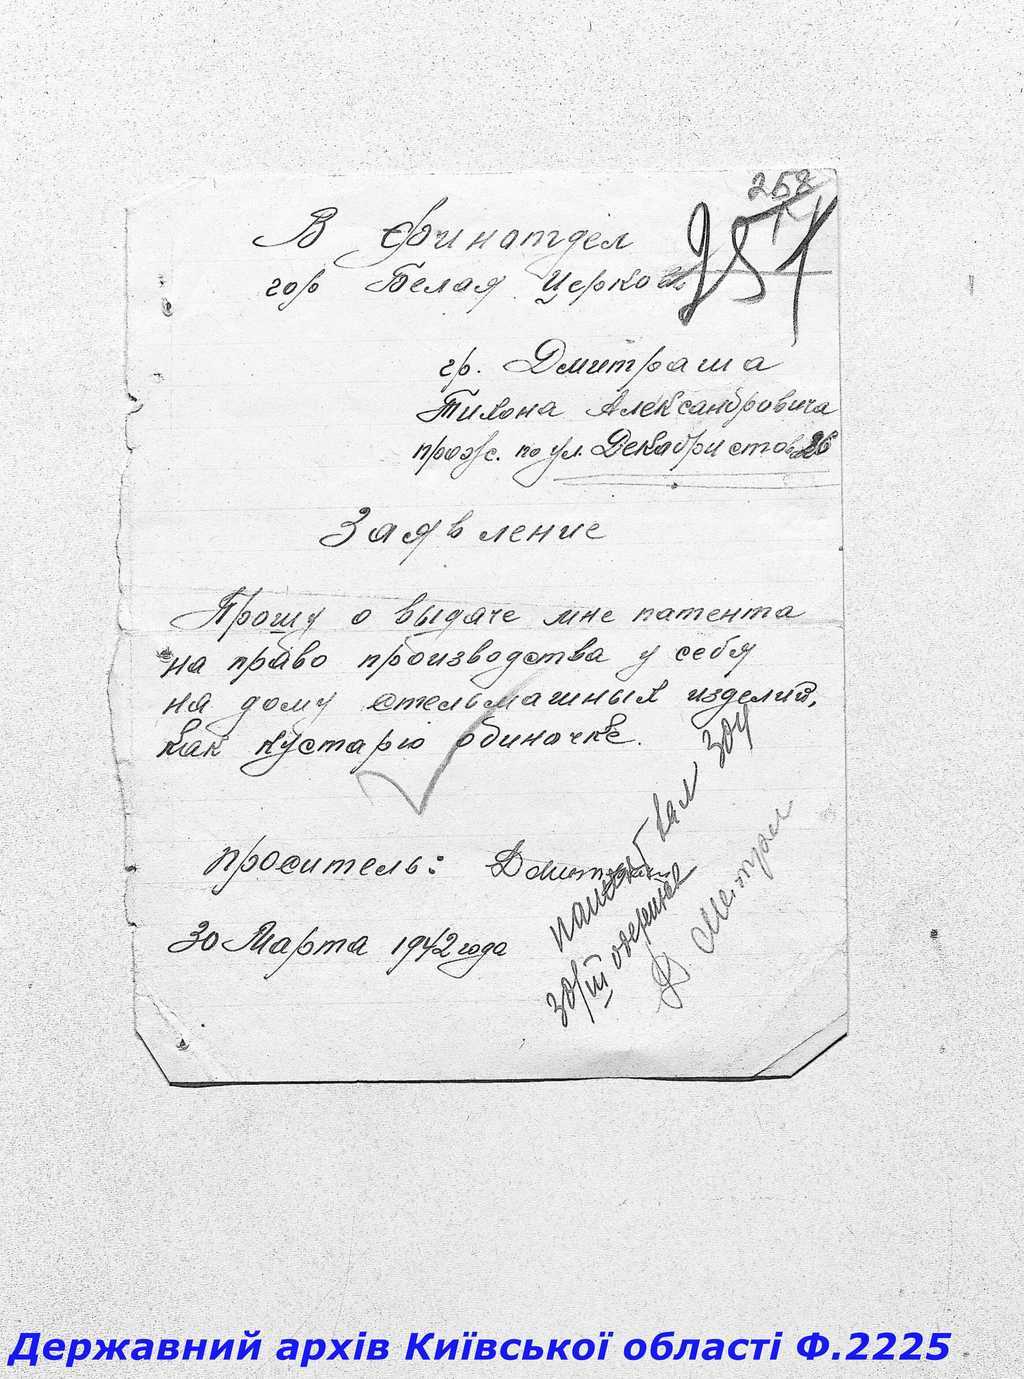 258
251
В Финотдел
гор Белая Церковь
гр. Дмитраша
Тихона Александровича
прож. по ул. Декабристов 26
Заявление
Прошу о выдаче мне патента
на право производства у себя
на дому стельмашных изделий,
как кустарю одиночке.
проситель: Дмитраш
30 Марта 1942 года
30/III
Державний архів Київської області Ф.2225